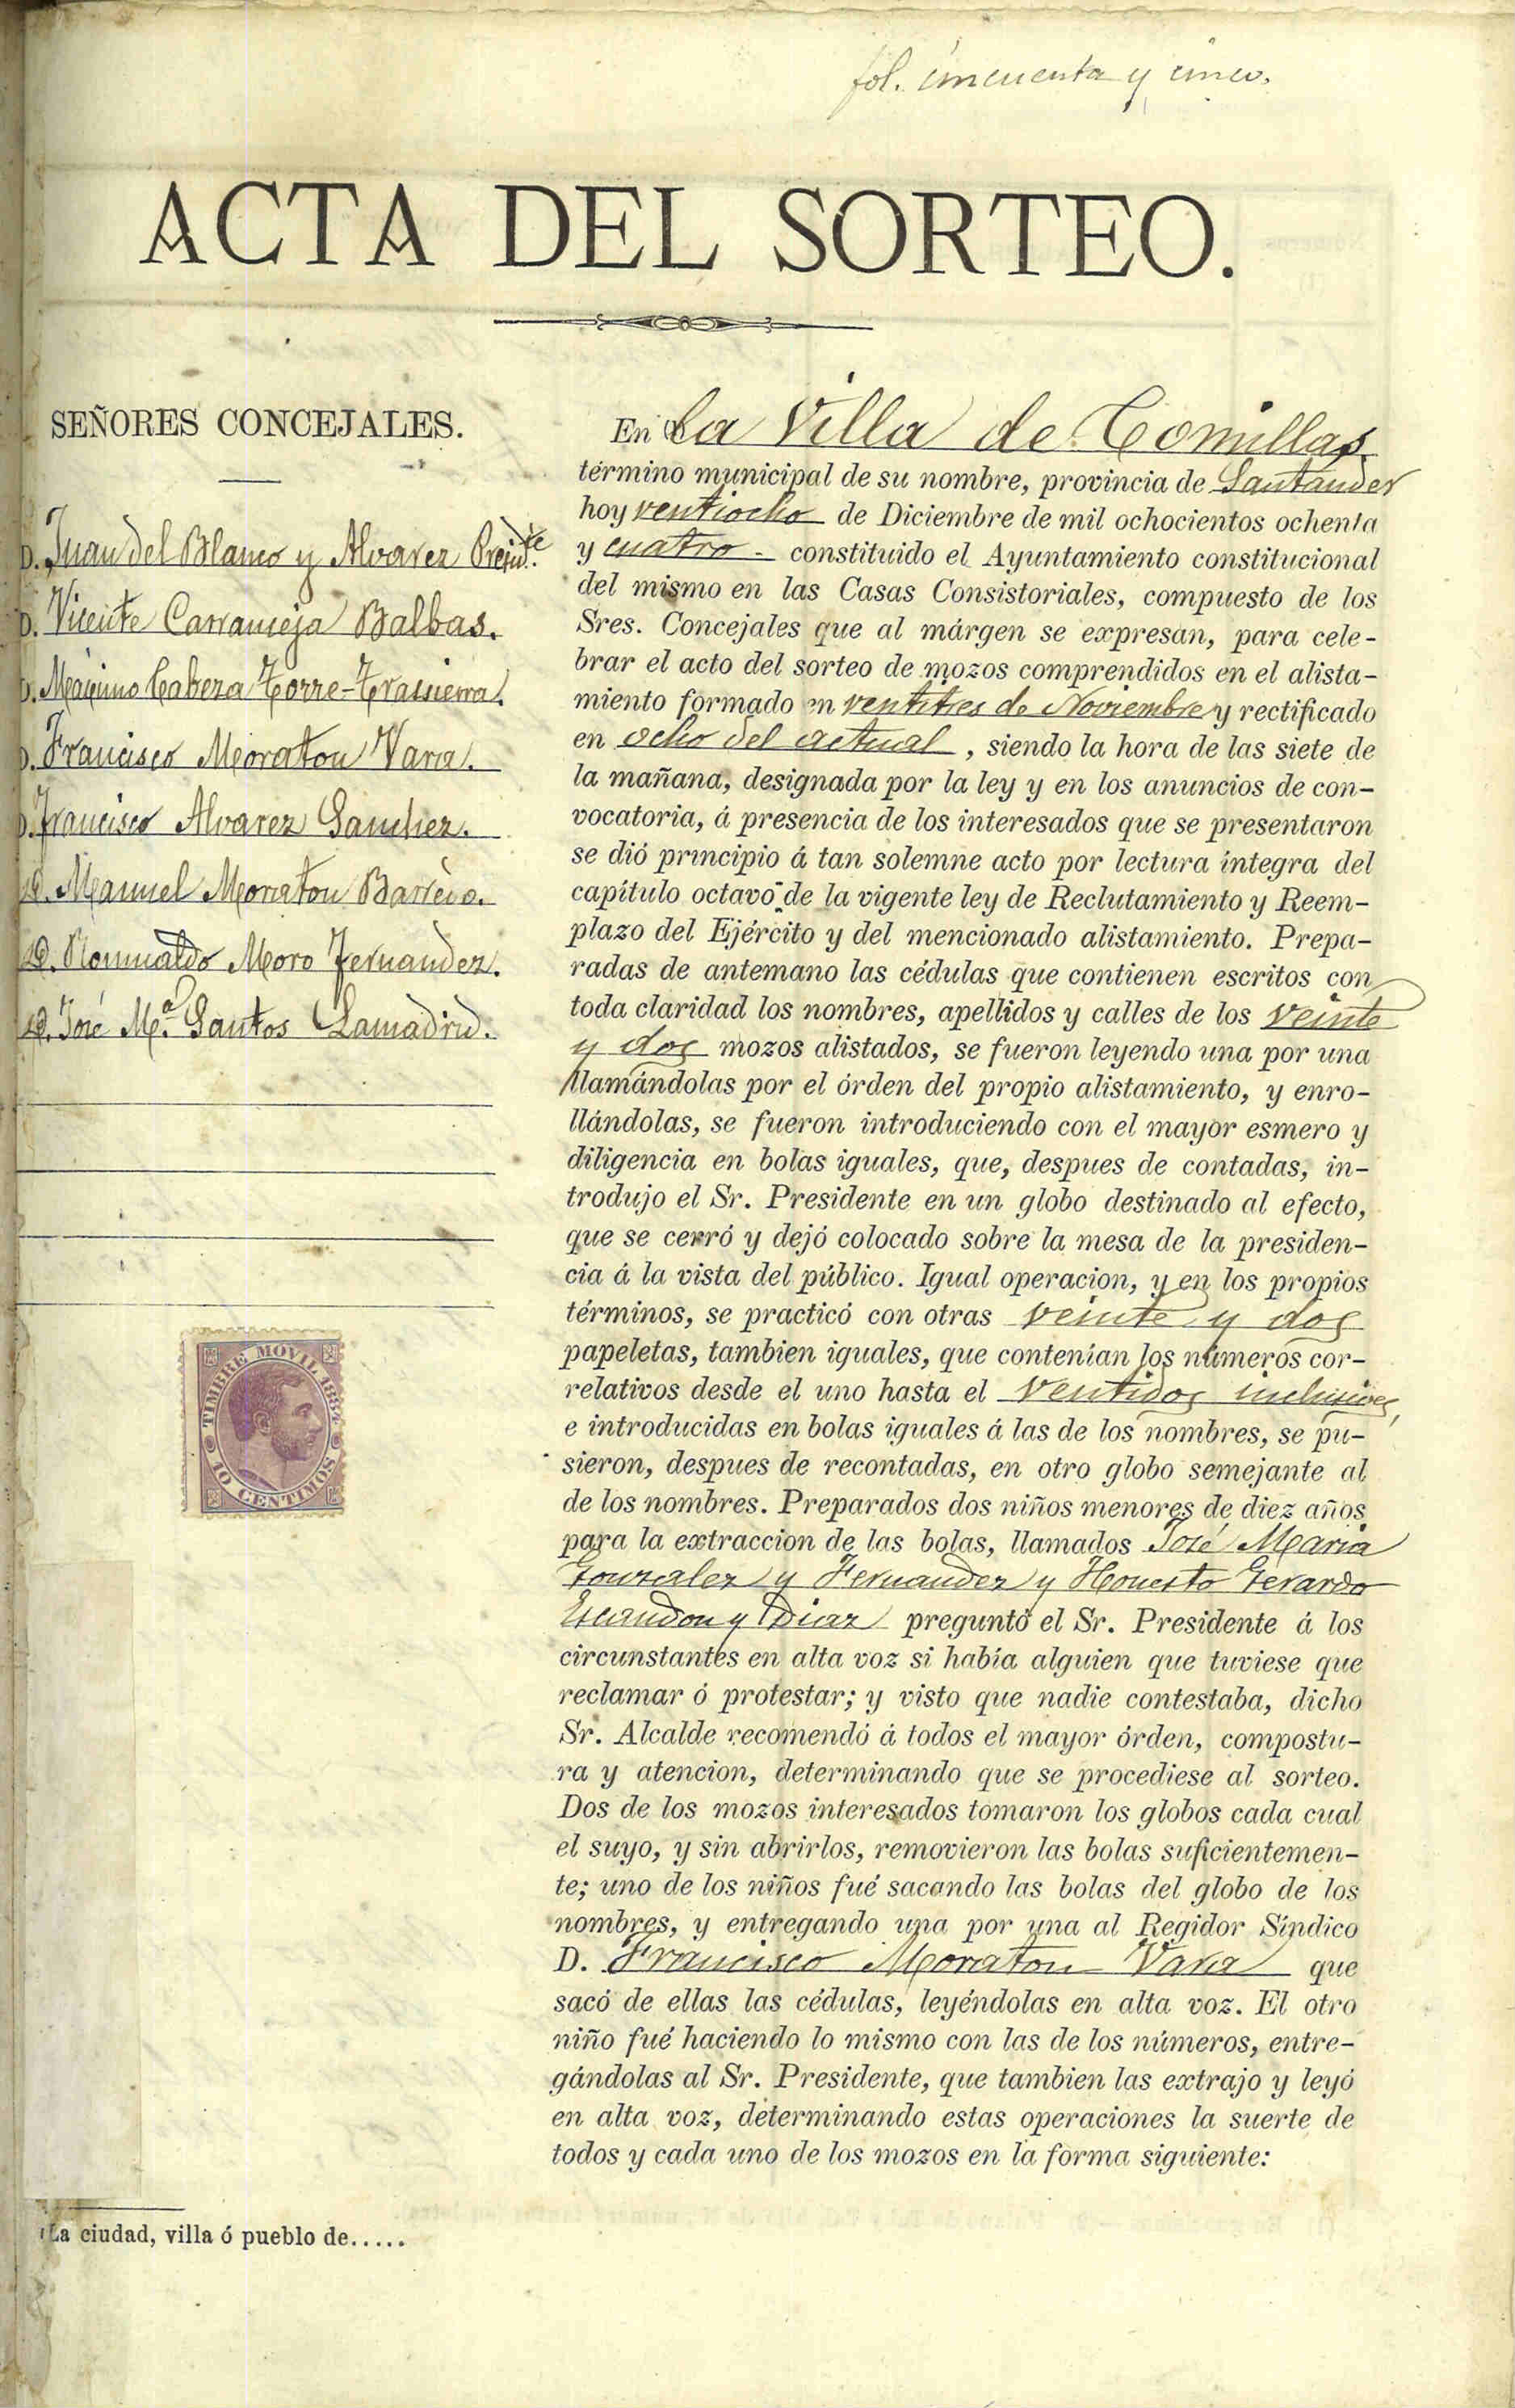 fol. cincuenta y cinco.
ACTA DEL SORTEO.
SEÑORES CONCEJALES.
D. Juan del Blanco y Alvarez Presid.te
D. Vicente Carranceja Balbas.
D. Máximo Cabeza Torre-Trassierra.
D. Francisco Moraton Vara.
D. Francisco Alvarez Sanchez.
D. Manuel Moraton Barreda.
D. Romualdo Moro Fernandez.
D. José M.a Santos Lamadrid.
TIMBRE MÓVIL 1884
10 CENTIMOS
En La Villa de Comillas
término municipal de su nombre, provincia de Santander
hoy ventiocho de Diciembre de mil ochocientos ochenta
y cuatro - constituido el Ayuntamiento constitucional
del mismo en las Casas Consistoriales, compuesto de los
Sres. Concejales que al márgen se expresan, para cele-
brar el acto del sorteo de mozos comprendidos en el alista-
miento formado en ventitres de Noviembre y rectificado
en ocho del actual, siendo la hora de las siete de
la mañana, designada por la ley y en los anuncios de con-
vocatoria, á presencia de los interesados que se presentaron
se dió principio á tan solemne acto por lectura íntegra del
capítulo octavo de la vigente ley de Reclutamiento y Reem-
plazo del Ejército y del mencionado alistamiento. Prepa-
radas de antemano las cédulas que contienen escritos con
toda claridad los nombres, apellidos y calles de los veinte
y dos mozos alistados, se fueron leyendo una por una
llamándolas por el órden del propio alistamiento, y enro-
llándolas, se fueron introduciendo con el mayor esmero y
diligencia en bolas iguales, que, despues de contadas, in-
trodujo el Sr. Presidente en un globo destinado al efecto,
que se cerró y dejó colocado sobre la mesa de la presiden-
cia á la vista del público. Igual operacion, y en los propios
términos, se practicó con otras veinte y dos
papeletas, tambien iguales, que contenían los números cor-
relativos desde el uno hasta el ventidos inclusives,
e introducidas en bolas iguales á las de los nombres, se pu-
sieron, despues de recontadas, en otro globo semejante al
de los nombres. Preparados dos niños menores de diez años
para la extraccion de las bolas, llamados José Maria
Gonzalez y Fernandez y Honesto Gerardo
Escandon y Diaz preguntó el Sr. Presidente á los
circunstantes en alta voz si había alguien que tuviese que
reclamar ó protestar; y visto que nadie contestaba, dicho
Sr. Alcalde recomendó á todos el mayor órden, compostu-
ra y atencion, determinando que se procediese al sorteo.
Dos de los mozos interesados tomaron los globos cada cual
el suyo, y sin abrirlos, removieron las bolas suficientemen-
te; uno de los niños fué sacando las bolas del globo de los
nombres, y entregando una por una al Regidor Síndico
D. Francisco Moraton Vara que
sacó de ellas las cédulas, leyéndolas en alta voz. El otro
niño fué haciendo lo mismo con las de los números, entre-
gándolas al Sr. Presidente, que tambien las extrajo y leyó
en alta voz, determinando estas operaciones la suerte de
todos y cada uno de los mozos en la forma siguiente:
La ciudad, villa ó pueblo de.....